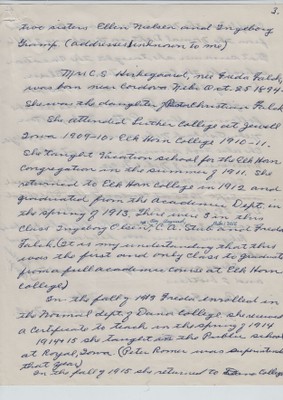 3.
two sisters Ellen Nielsen and Ingeborg
Tramp (addresses unknown to me)
Mrs C. S. Kirkegaard, nee Freda Falck,
was born near Cordova Nebr Oct. 25 1894.
She was the daughter of Peter Christian Falck
She attended Luther College at Jewell
Iowa 1909-10. Elk Horn College 1910-11.
She taught Vacation school for the Elk Horn
Congregation in the summer of 1911. She
returned to Elk Horn College in 1912 and
graduated from the Academic Dept. in
the spring of 1913. There were 3 in this
Class Ingeborg Olsen, C. A. and Freda
Falck. (It is my understanding that this
was the first and only class to graduate
from a full academic course at Elk Horn
College)
In the fall of 1913 Freda enrolled in
the Normal dept. of Dana College she received
a Certificate to teach in the spring of 1914
1914-15 she taught in the Public school
at Royal, Iowa (Peter Romer was superintendent
that year)
In the fall of 1915 she returned to Dana College